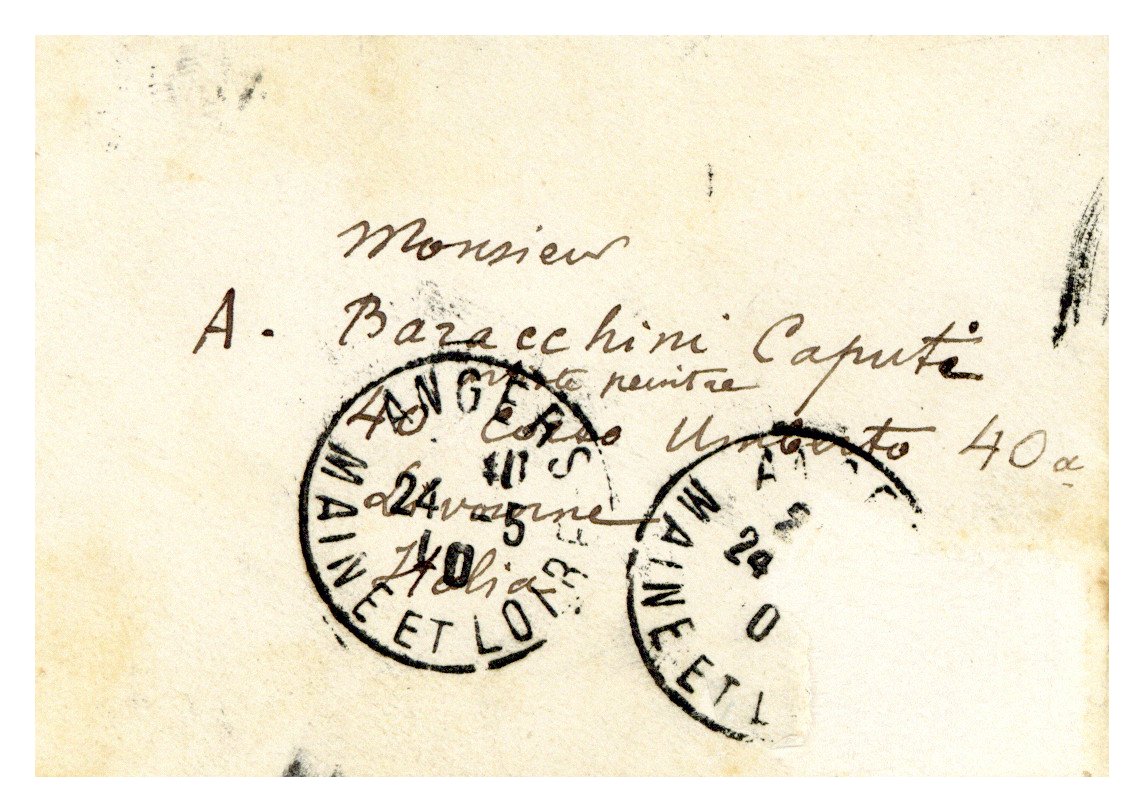 Monsieur
A. Baracchini Caputi
artiste peintre
40 Corso Umberto 40a
Livourne
Italia
ANGERS
MAINE ET LOIRE
24 -5
10
MAINE ET L
24
0